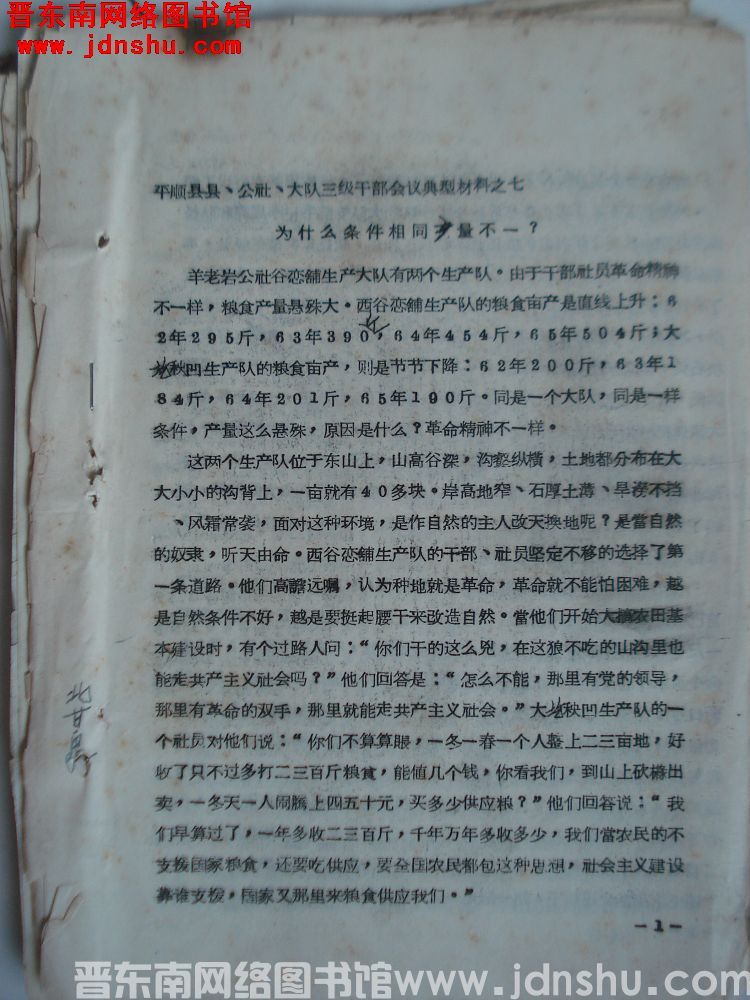 晋东南网络图书馆
www.jdnshu.com
平顺县县、公社、大队三级干部会议典型材料之七
为什么条件相同产量不一？
羊老岩公社谷恋舖生产大队有两个生产队。由于干部社员革命精神
不一样，粮食产量悬殊大。西谷恋舖生产队的粮食亩产是直线上升：6
2年295斤，63年390斤，64年454斤，65年504斤；大
秧凹生产队的粮食亩产，则是节节下降：62年200斤，63年1
84斤，64年201斤，65年190斤。同是一个大队，同是一样
条件，产量这么悬殊，原因是什么？革命精神不一样。
这两个生产队位于东山上，山高谷深，沟壑纵横，土地都分布在大
大小小的沟背上，一亩就有40多块。岸高地窄、石厚土薄、旱涝不挡
、风霜常袭，面对这种环境，是作自然的主人改天换地呢？是當自然
的奴隶，听天由命。西谷恋舖生产队的干部、社员坚定不移的选择了第
一条道路。他们高瞻远瞩，认为种地就是革命，革命就不能怕困难，越
是自然条件不好，越是要挺起腰干来改造自然。當他们开始大搞农田基
本建设时，有个过路人问：“你们干的这么兇，在这狼不吃的山沟里也
能走共产主义社会吗？”他们回答是：“怎么不能，那里有党的领导，
那里有革命的双手，那里就能走共产主义社会。”大秧凹生产队的一
个社员对他们说：“你们不算算賬，一冬一春一个人整上二三亩地，好
收了只不过多打二三百斤粮食，能值几个钱，你看我们，到山上砍椽出
卖，一冬天一人闹腾上四五十元，买多少供应粮？”他们回答说：“我
们早算过了，一年多收二三百斤，千年万年多收多少，我们當农民的不
支援国家粮食，还要吃供应，要全国农民都包这种思想，社会主义建设
靠谁支援，国家又那里来粮食供应我们。”
-1-
晋东南网络图书馆www.jdnshu.com